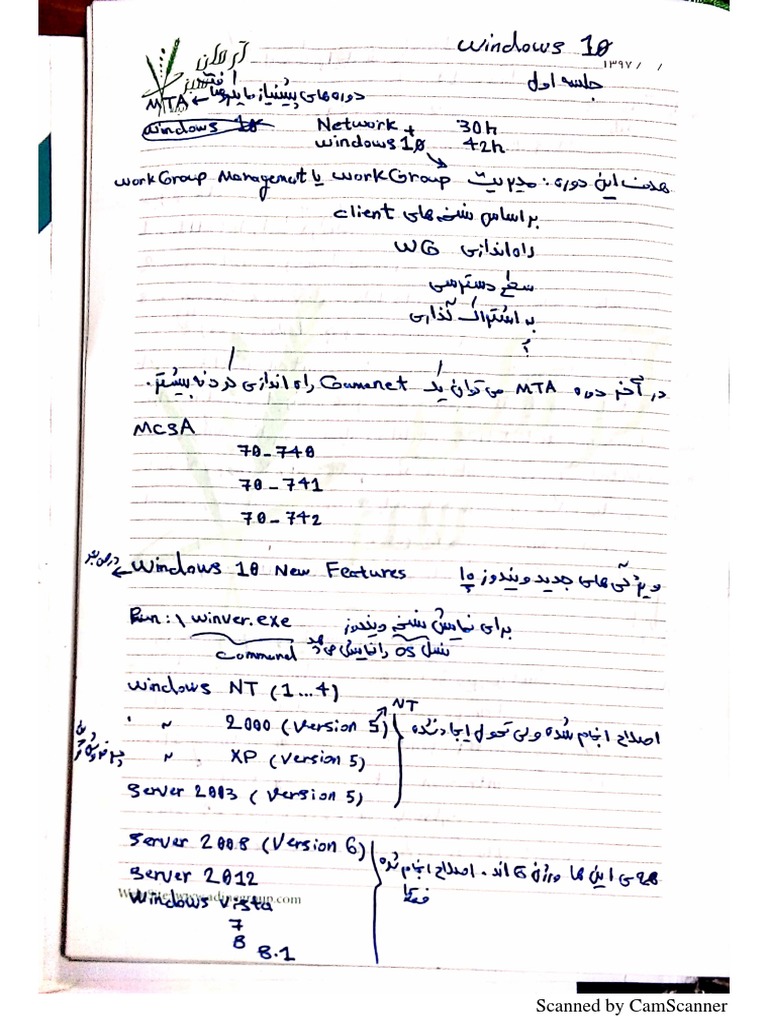 Windows 10
۱۳۹۷/ /
جلسه اول
دوره های پیشنیاز مایکروسافت ← MTA
Windows 10 Network + 30h
windows 10 42h
هدف این دوره: مدیریت workGroup یا workGroup Management
بر اساس نسخه های client
راه اندازی WG
سطح دسترسی
به اشتراک گذاری
در آخر دوره MTA می توان یک راه اندازی کرد نه بیشتر.
MCSA
70-740
70-741
70-742
Windows 10 New Features ویژگی های جدید ویندوز ۱۰
Run:\ winver.exe برای نمایش نسخه ویندوز
Command نسل OS را نمایش می دهد
Windows NT (1...4)
NT
" ~ 2000 (Version 5) اصلاح انجام شده ولی تحول ایجاد نشده
~ XP (Version 5)
Server 2003 (Version 5)
Server 2008 (Version 6)
Server 2012 همه ی این ها ورژن ۶ اند. اصلاح انجام شده
فقط
Windows Vista
7
8
8.1
Scanned by CamScanner